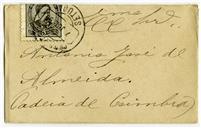 Ex.mo Snr.
Antonio José de
Almeida.
Cadeia de Coimbra